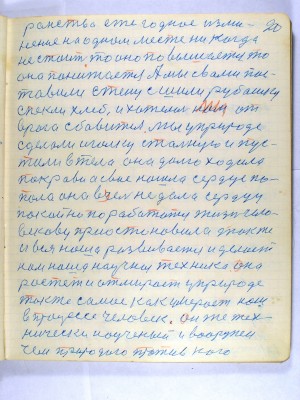 20
ранство ежегодное изми-
нения на одном месте никогда
не стоит, то оно повышается то
она понижается. А мы с вами пос-
тавили стену сшили рубашку
спекли хлеб, и хотели от
врага сбавится. Мы у природе
сделали иголку стальную и пус-
тили в тела она долго ходила
покрова а сне нашла сердце по-
пола она в чем не дала сердцу
покойно поработать жизнь чело-
векову приостановила. Факти
и вся наша развивается и делает
нам наша научная техника. Она
растет и отмирает у природе
так то самое как умерает наш
в процессе человек. Он же тех-
нически научений и вооружен
чем природого против кого